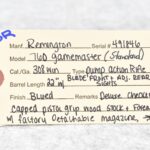 OR
Manf. Remington Serial # 491846
Model 760 Gamemaster (Standard)
Cal/Ga .308 win Type Pump Action Rifle
Barrel Length 22" BLADE FRONT + ADJ. REAR SIGHTS
Finish Blued Remarks Deluxe Checkered
capped pistol grip wood stock + Forearm
w/ factory detachable magazine,